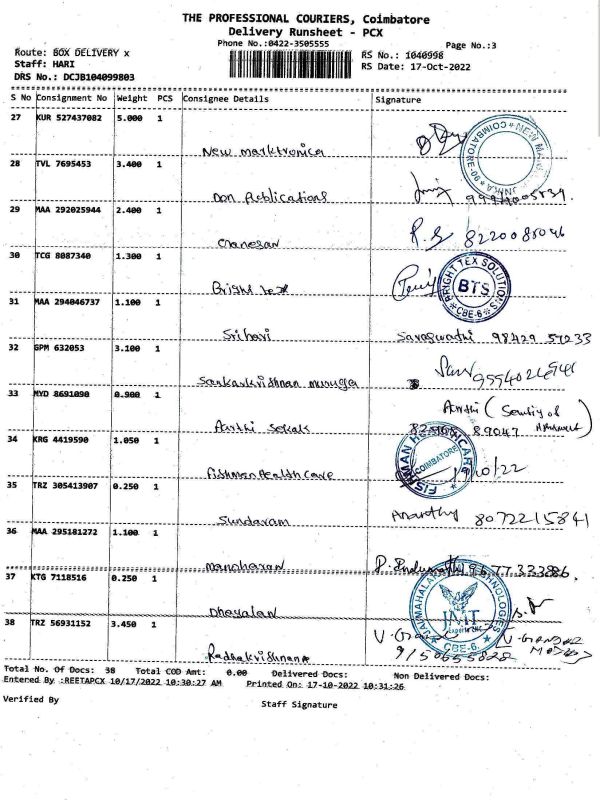 THE PROFESSIONAL COURIERS, Coimbatore
Delivery Runsheet - PCX
Phone No.:0422-3505555
Page No.:3
Route: BOX DELIVERY x
RS No.: 1040998
Staff: HARI
RS Date: 17-Oct-2022
DRS No.: DCJB104099803
S No Consignment No Weight PCS Consignee Details Signature
27 KUR 527437082 5.000 1
New marktronica
COIMBATORE
28 TVL 7695453 3.400 1
Don Publications
29 MAA 292025944 2.400 1
Ganesan R.S
30 TCG 8087340 1.300 1
Bright tex
BRIGHT TEX SOLUTIONS BTS CBE-6
31 MAA 294046737 1.100 1
Srihari Saraswathi 98429 57233
32 GPM 632053 3.100 1
Sankarkrishnan muruga
33 MYD 8691090 0.900 1
Aarthi Sekar
34 KRG 4419590 1.050 1
Fishman Healthcare
FISHMAN HEALTHCARE COIMBATORE
35 TRZ 305413907 0.250 1
Sundaram 8072215841
36 MAA 295181272 1.100 1
Manoharan
37 KTG 7118516 0.250 1
Dhayalan
TECHNOLOGIES JMT CBE-6
38 TRZ 56931152 3.450 1
Radhakrishnan
Total No. Of Docs: 38 Total COD Amt: 0.00 Delivered Docs: Non Delivered Docs:
Entered By :REETAPCX 10/17/2022 10:30:27 AM Printed On: 17-10-2022 10:31:26
Verified By
Staff Signature